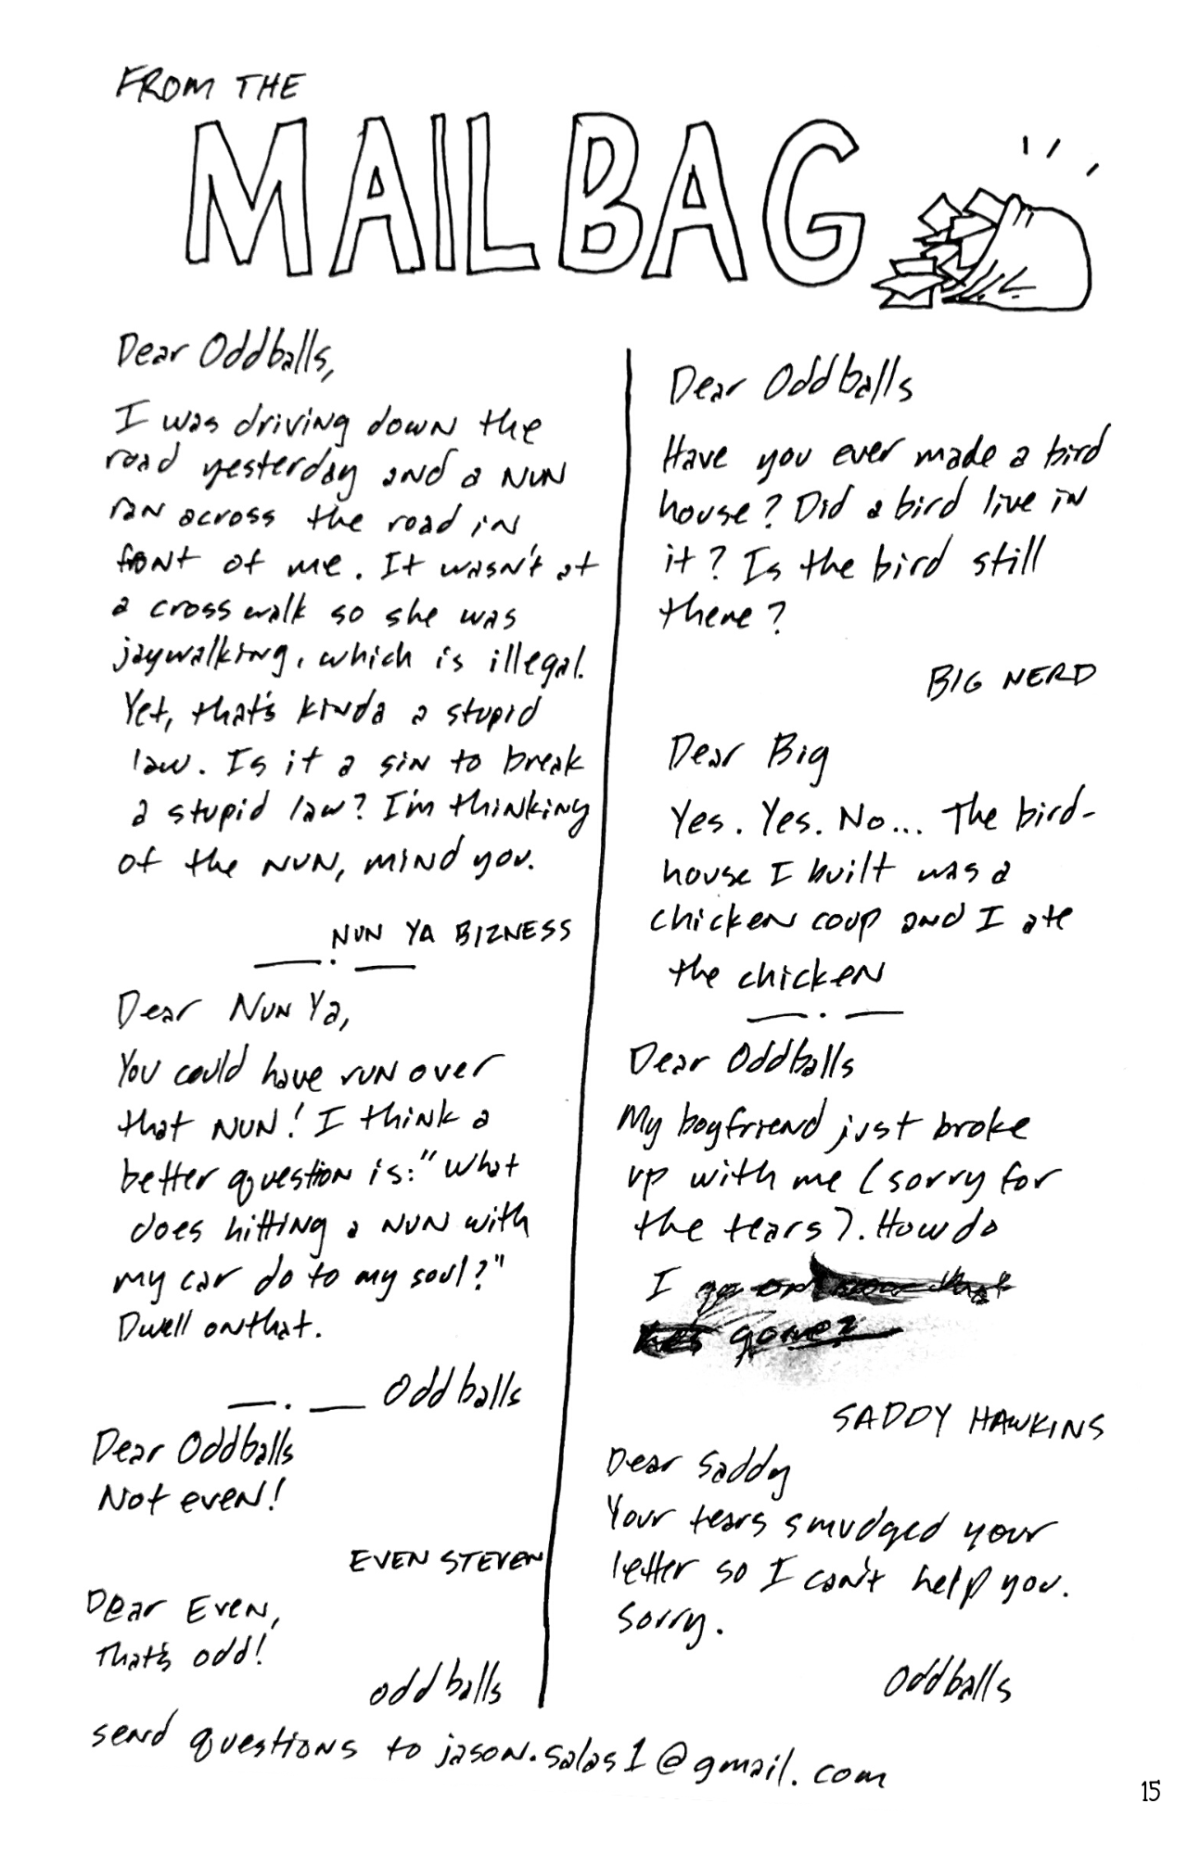 FROM THE
MAILBAG
Dear Oddballs,
I was driving down the
road yesterday and a NUN
ran across the road in
font of me. It wasn't at
a crosswalk so she was
jaywalking, which is illegal.
Yet, that's kinda a stupid
law. Is it a sin to break
a stupid law? I'm thinking
of the NUN, mind you.
NUN YA BIZNESS
Dear Nun Ya,
You could have run over
that NUN! I think a
better question is: "What
does hitting a NUN with
my car do to my soul?"
Dwell on that.
Oddballs
Dear Oddballs
Not even!
EVEN STEVEN
Dear Even,
That's odd!
oddballs
Dear Oddballs
Have you ever made a bird
house? Did a bird live in
it? Is the bird still
there?
BIG NERD
Dear Big
Yes. Yes. No... The bird-
house I built was a
chicken coup and I ate
the chicken
Dear Oddballs
My boyfriend just broke
up with me (sorry for
the tears). How do
I go on now that
he's gone?
SADDY HAWKINS
Dear Saddy
Your tears smudged your
letter so I can't help you.
Sorry.
Oddballs
send questions to jason.salas1@gmail.com
15